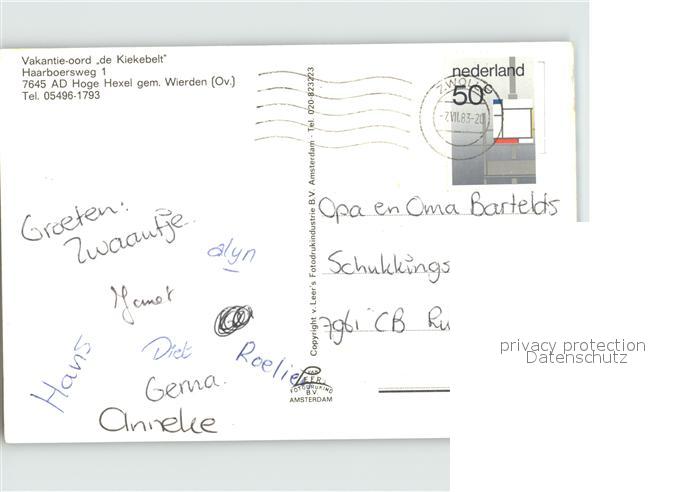 Vakantie-oord „de Kiekebelt"
Haarboersweg 1
7645 AD Hoge Hexel gem. Wierden (Ov.)
Tel. 05496-1793
Copyright v. Leer's Fotodrukindustrie B.V. Amsterdam - Tel. 020-823223
nederland
50c
ZWOLLE
-7.VII.83-20
Groeten:
Zwaantje
alyn
Janet
Hans
Dick
Roelie
Gerna.
Anneke
VAN
LEER'S
FOTODRUKIND
B.V.
AMSTERDAM
Opa en Oma Bartelds
Schukkings
7961 CB Ru
privacy protection
Datenschutz